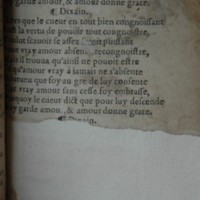 garde amour, & amour donne grace.
¶ Dixain.
que le cueur en tout bien congnoissant
la vertu de pouoir tout congnoistre,
scauoir se assez puissant
vray amour absent, recongnoistre,
il trouua qu'ainsi ne pouoit estre
qu'amour vray à iamais ne s'absente
que foy au gre de luy consente
vray amour sans cesse foy embrasse,
quoy le cueur dict que pour luy descende
garde amour, & amour donne grace.
¶ Dixain.